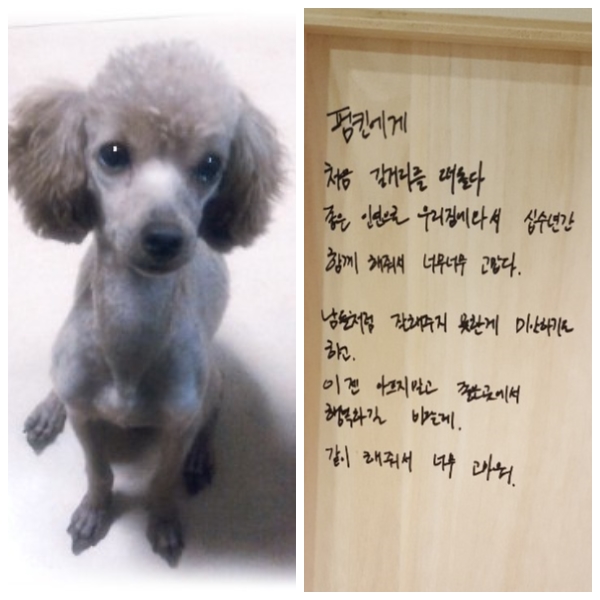 펌킨에게
처음 길거리를
좋은 인연으로 우리집에와서 십수년간
함께 해줘서 너무너무 고맙다.
남들처럼 잘해주지 못한게 미안하기도
하고.
이젠 아프지말고 좋은곳에서
행복하길 바랄게.
같이 해줘서 너무 고마워.